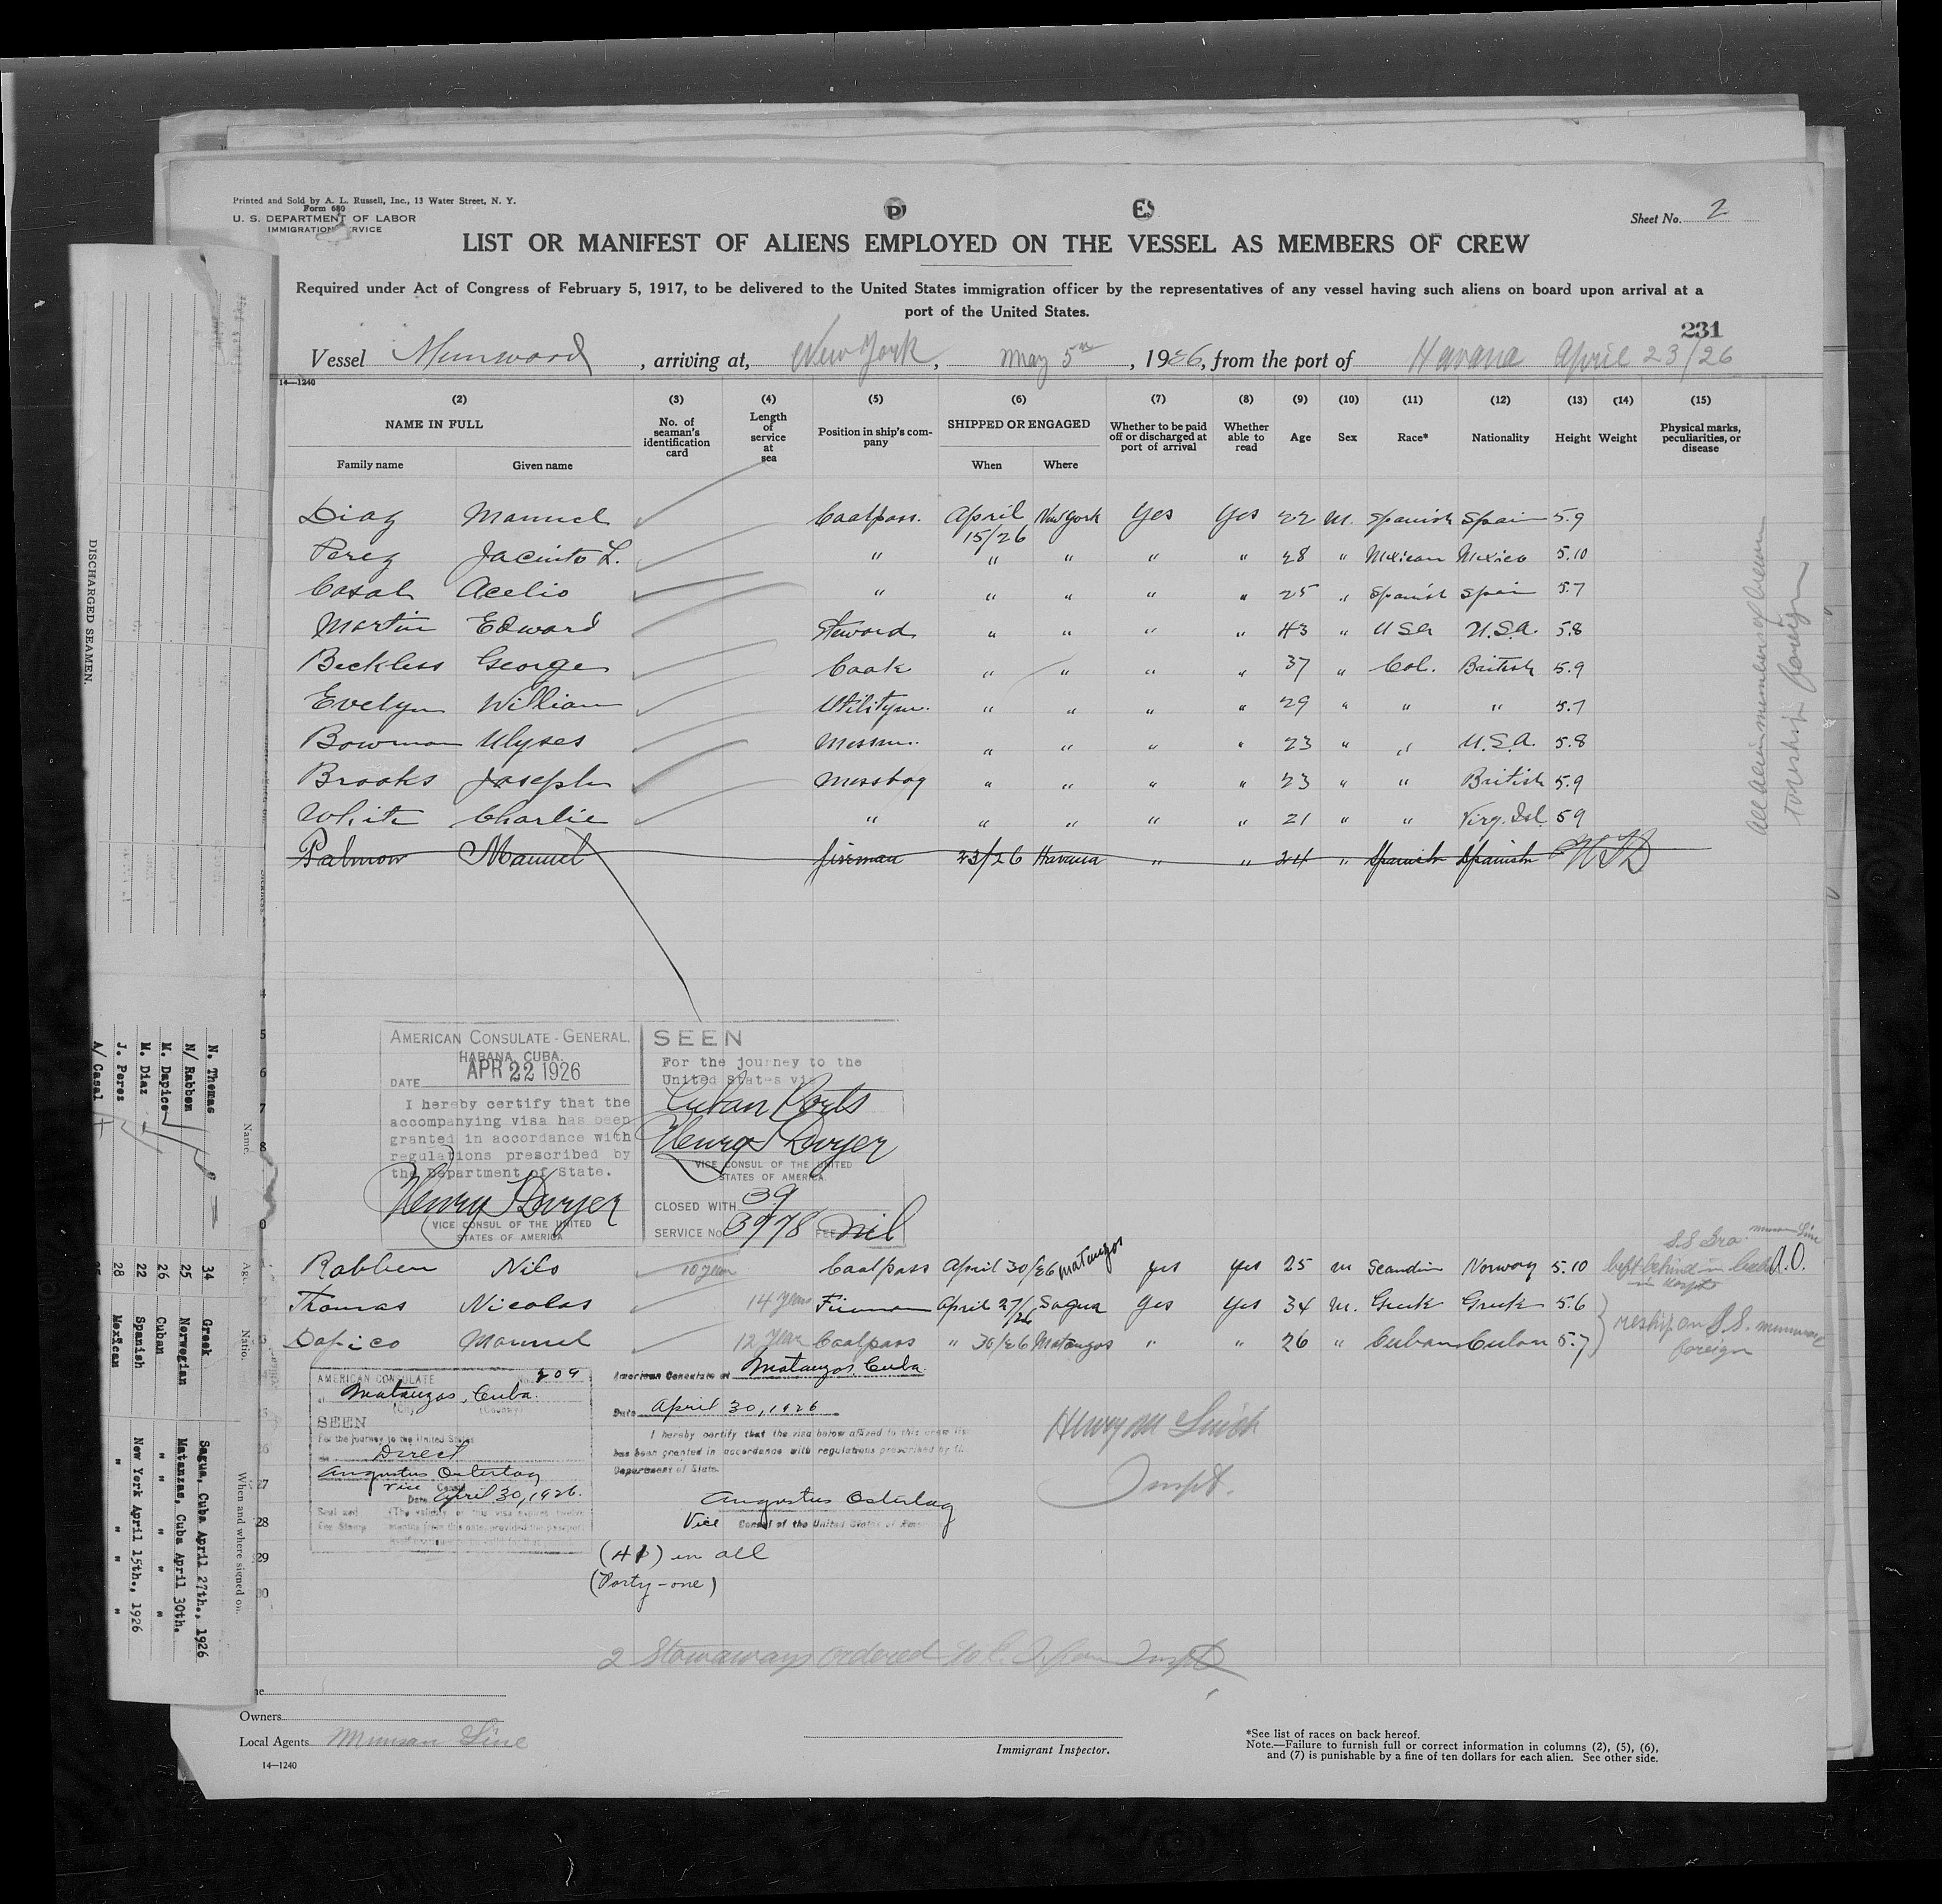 Printed and Sold by A. L. Russell, Inc., 13 Water Street, N. Y.
Form 680
U. S. DEPARTMENT OF LABOR
IMMIGRATION SERVICE
Sheet No. 2
LIST OR MANIFEST OF ALIENS EMPLOYED ON THE VESSEL AS MEMBERS OF CREW
Required under Act of Congress of February 5, 1917, to be delivered to the United States immigration officer by the representatives of any vessel having such aliens on board upon arrival at a
port of the United States.
231
Vessel Munwood, arriving at, New York, May 5th, 1926, from the port of Havana April 23/26
14—1240
(2) (3) (4) (5) (6) (7) (8) (9) (10) (11) (12) (13) (14) (15)
NAME IN FULL No. of seaman's identification card Length of service at sea Position in ship's company SHIPPED OR ENGAGED Whether to be paid off or discharged at port of arrival Whether able to read Age Sex Race* Nationality Height Weight Physical marks, peculiarities, or disease
Family name Given name When Where
Diaz Manuel Coalpass. April 15/26 New York Yes Yes 22 M. Spanish Spain 5.9
Perez Jacinto L. " " " " " 28 " Mexican Mexico 5.10
Casal Acelio " " " " " 25 " Spanish Spain 5.7
Martin Edward Steward " " " " 43 " USA U.S.A. 5.8
Beckless George Cook " " " " 37 " Col. British 5.9
Evelyn William Utilitym. " " " " 29 " " " 5.7
Bowman Ulyses Messm. " " " " 23 " " U.S.A. 5.8
Brooks Joseph Messboy " " " " 23 " " British 5.9
White Charlie " " " " " 21 " " Virg. Isl. 5.9
Palmow Manuel fireman 23/26 Havana " " 24 " Spanish Spanish
All alien members of crew
to reship foreign
AMERICAN CONSULATE-GENERAL,
HABANA, CUBA.
DATE APR 22 1926
I hereby certify that the
accompanying visa has been
granted in accordance with
regulations prescribed by
the Department of State.
Henry T Dwyer
VICE CONSUL OF THE UNITED
STATES OF AMERICA
SEEN
For the journey to the
United States via
Cuban Ports
Henry T Dwyer
VICE CONSUL OF THE UNITED
STATES OF AMERICA
CLOSED WITH 39
SERVICE No 3978 FEE nil
Robben Nils 10 year Coalpass April 30/26 Matanzas yes yes 25 m Scandin Norway 5.10 left behind in Cuba in hospt A.O.
Thomas Nicolas 14 years Fireman April 27/26 Sagua Yes Yes 34 M. Greek Greek 5.6
Dapico Manuel 12 year Coalpass " 30/26 Matanzas " " 26 " Cuban Cuban 5.7
reship on S.S. Munwood
foreign
AMERICAN CONSULATE No. 209
at Matanzas, Cuba.
(City) (Country)
SEEN
For the journey to the United States
via Direct
Augustus Ostertag
Vice Consul
Date April 30, 1926.
American Consulate at Matanzas Cuba.
Date April 30, 1926
I hereby certify that the visa below affixed to this crew list
has been granted in accordance with regulations prescribed by the
Department of State.
Augustus Ostertag
Vice Consul of the United States of America
Henry M Smith
Inspt.
(41) in all
(Forty-one)
2 Stowaways ordered
Owners
Local Agents Munson Line
14—1240
Immigrant Inspector.
*See list of races on back hereof.
Note.—Failure to furnish full or correct information in columns (2), (5), (6),
and (7) is punishable by a fine of ten dollars for each alien. See other side.
DISCHARGED SEAMEN.
Name. Age. Natio. When and where signed on.
N. Thomas 34 Greek Sagua, Cuba April 27th., 1926
N/ Robben 25 Norwegian Matanzas, Cuba April 30th.
M. Dapice 26 Cuban " " " "
M. Diaz 22 Spanish New York April 15th., 1926
J. Perez 28 Mexican " " " "
A/ Casal